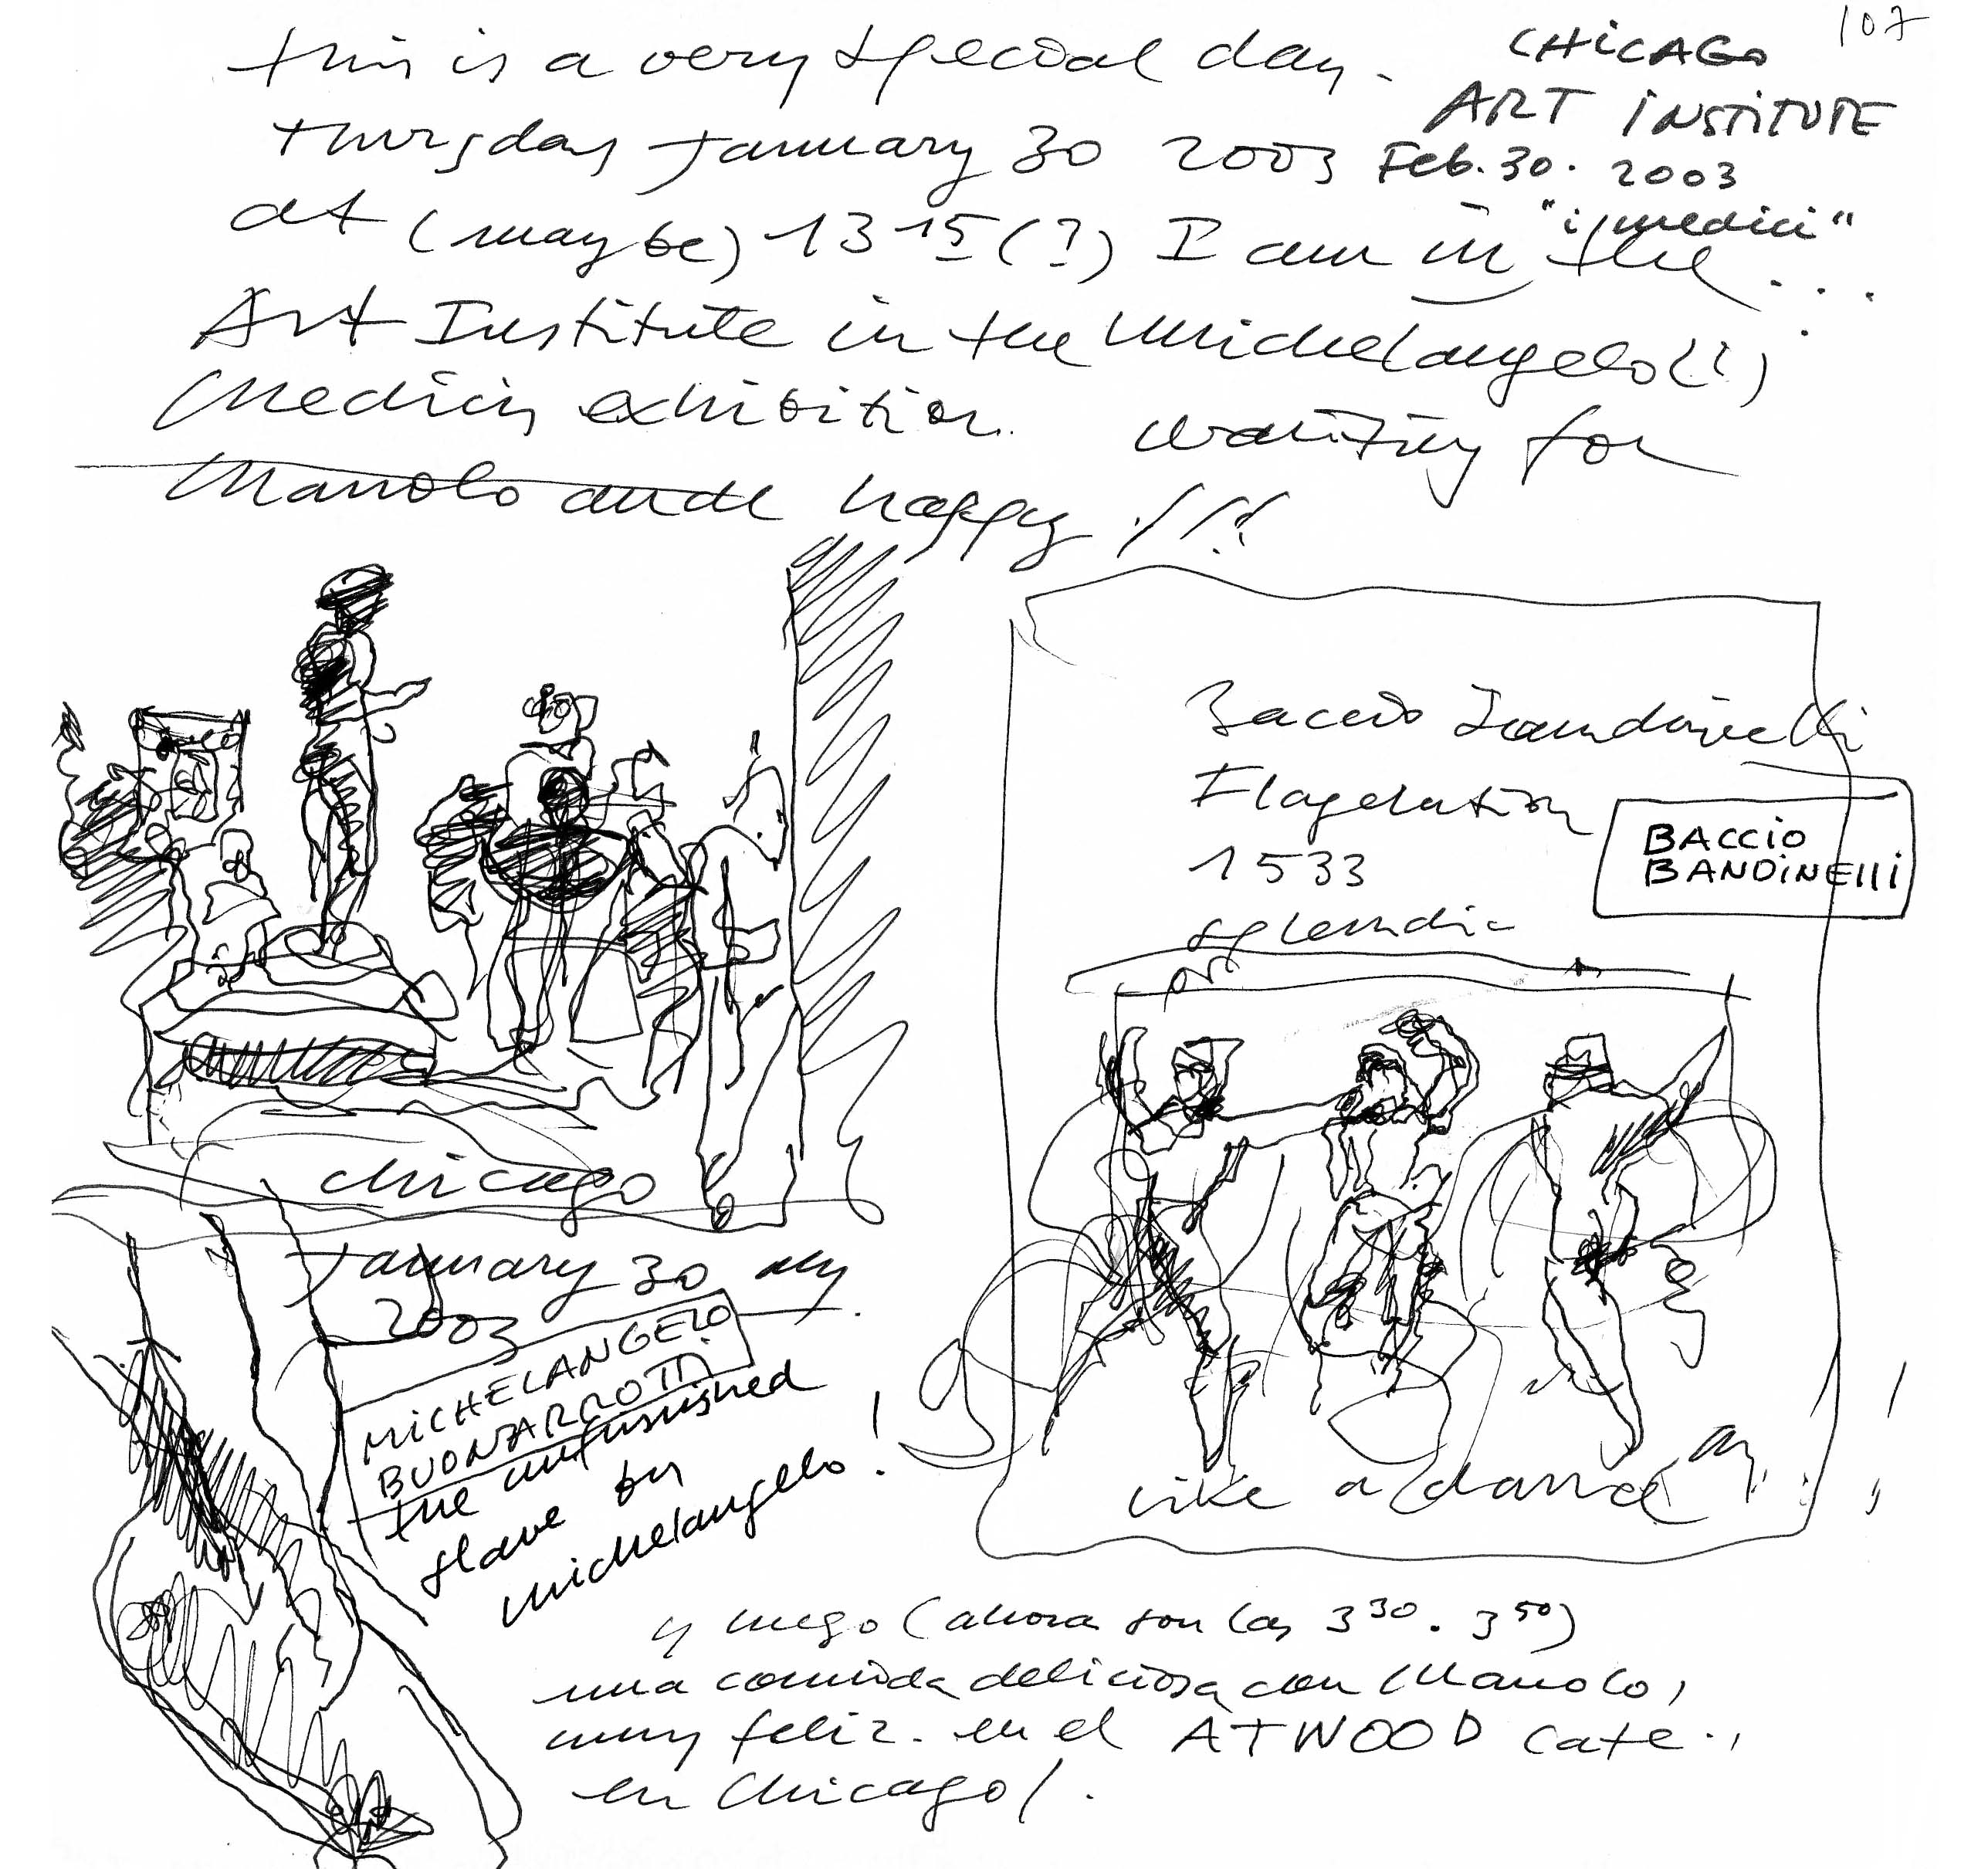 107
this is a very special day.
CHiCAGO
ART iNSTiTUTE
thursday January 30 2003
Feb. 30. 2003
"i medici"
at (maybe) 13 15 (?) I am in the ...
Art Institute in the Michelangelo (!)
Medicis exhibition. waiting for
Manolo and happy !!!
Baccio Bandinelli
Flagelation
1533
BACCiO
BANDiNElli
splendid
like a dance
chicago
January 30
2003
MiCHELANGELO
BUONARROTTi
the unfinished
slave by
michelangelo!
y luego (ahora son las 3 30 . 3 50)
una comida deliciosa con Manolo,
muy feliz. en el ATWOOD Cafe..,
en Chicago!.